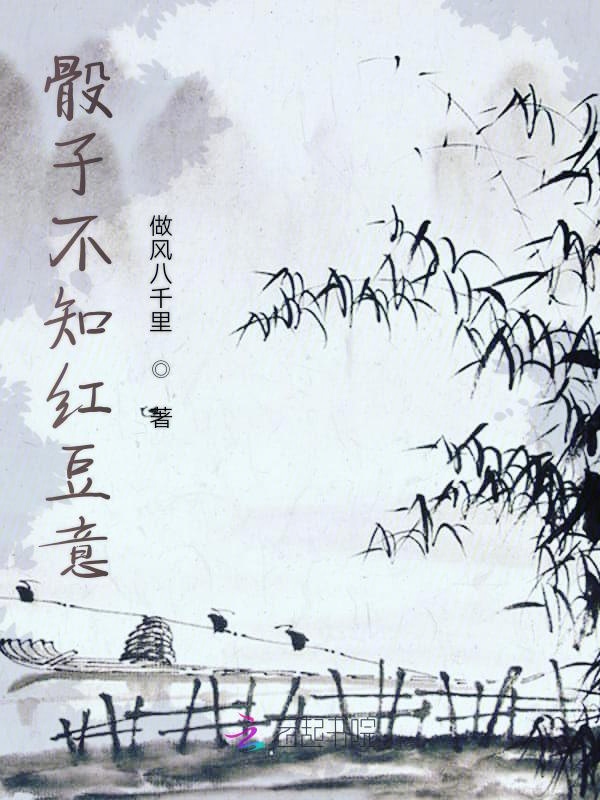 骰子不知红豆意
做风八千里 ◎ 著
云起书院